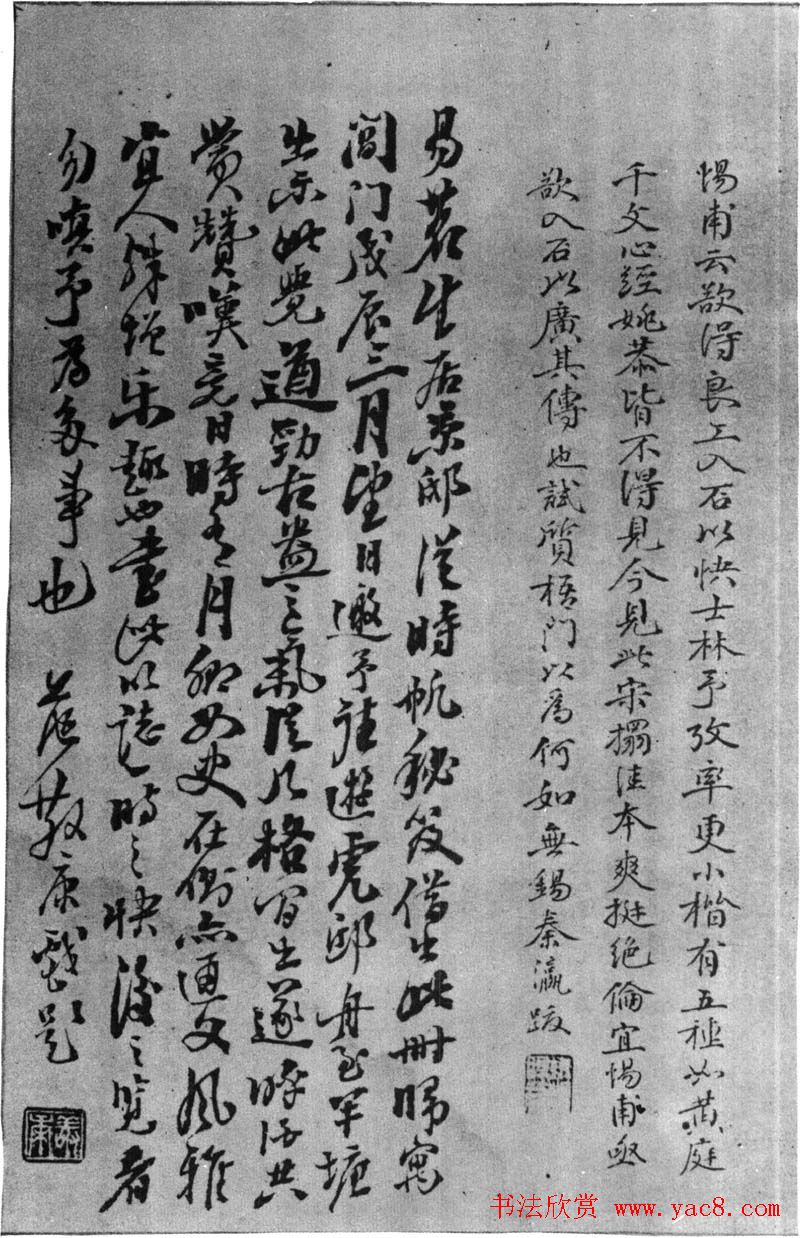 惕甫云欲得良工入石以快士林予攷率更小楷有五種如黃庭
千文心經姚恭皆不得見今見此宋搨佳本爽挺絕倫宜惕甫亟
欲入石以廣其傳也試質梧門以為何如無錫秦瀛跋
易君生居京邸從時帆秘笈借出此冊歸寓
閶門戊辰三月望日邀予往遊虎邱舟至半塘
出示此覺遒勁古益之氣從風格間出遂呼酒共
賞贊嘆竟日時月卿女史在側亦通文風雅
宜人殊增樂趣也書此以誌一時之快後之覽者
勿嗔予為多事也 康題
书法欣赏 www.yac8.com